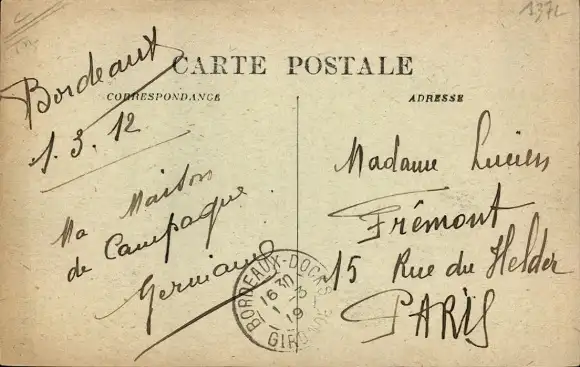 137L
CARTE POSTALE
CORRESPONDANCE
ADRESSE
Bordeaux
1.3.12
Ma Maison
de Campagne
Madame Lucien
Frémont
15 Rue du Helder
PARIS
BORDEAUX-DOCKS
16 30
1 -3
GIRONDE